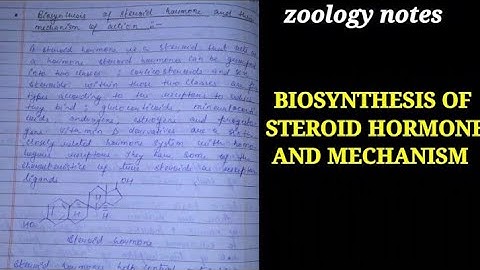 Biosynthesis of steroid hormone and their
mechanism of action :-
A steroid hormone is a steroid that acts as
a hormone steroid hormones can be grouped
into two classes : corticosteroids and sex
steroids within those two classes are five
types according to the receptors to which
they bind : glucocorticoids mineralocorti-
coids androgens, estrogens and progesto-
gens vitamin D derivatives are a sixth
closely related hormone system with homo-
logous receptors They have some of the
characteristics of true steroids as receptor
ligands
OH
H
H
H
HO
Steroid hormone
Steroid hormones help control
zoology notes
BIOSYNTHESIS OF
STEROID HORMONE
AND MECHANISM